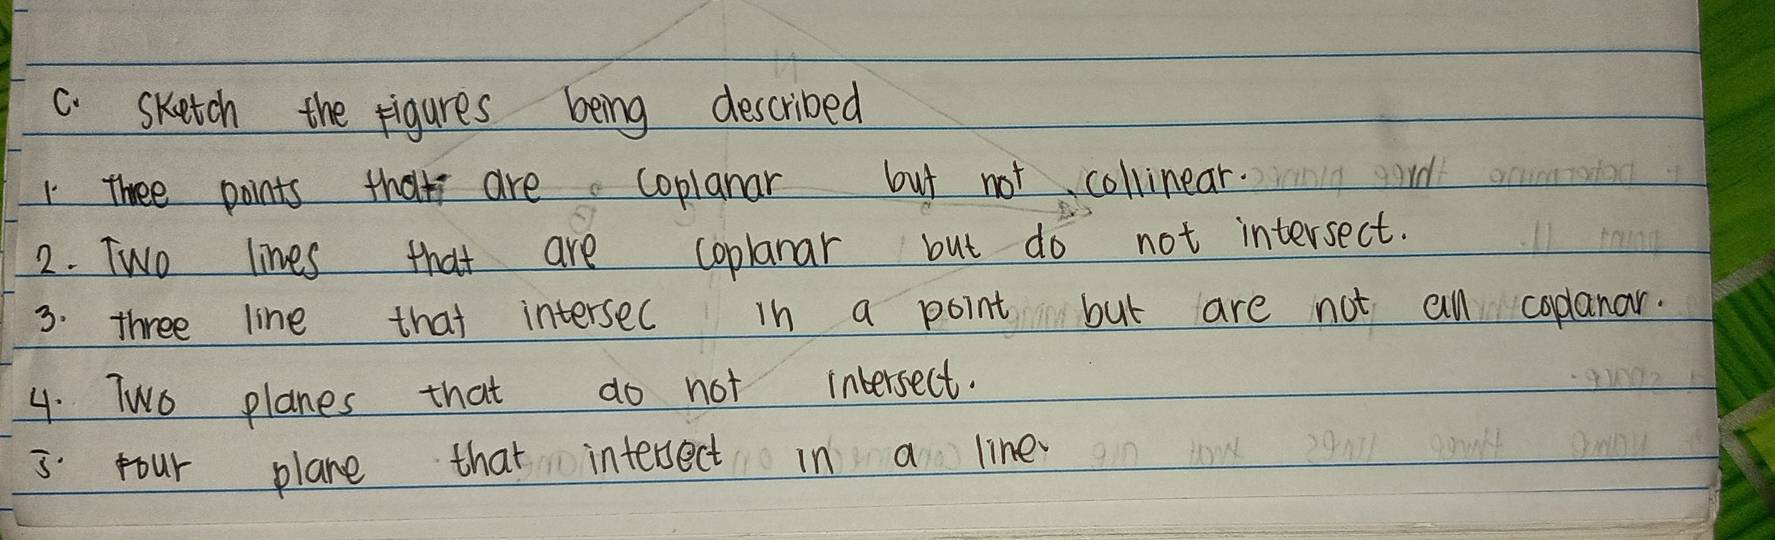 C. Sketch the figures being described
1. Three points that are coplanar but not collinear.
2. Two lines that are coplanar but do not intersect.
3. three line that intersec in a point but are not all coplanar.
4. Two planes that do not intersect.
5. four plane that intersect in a line.